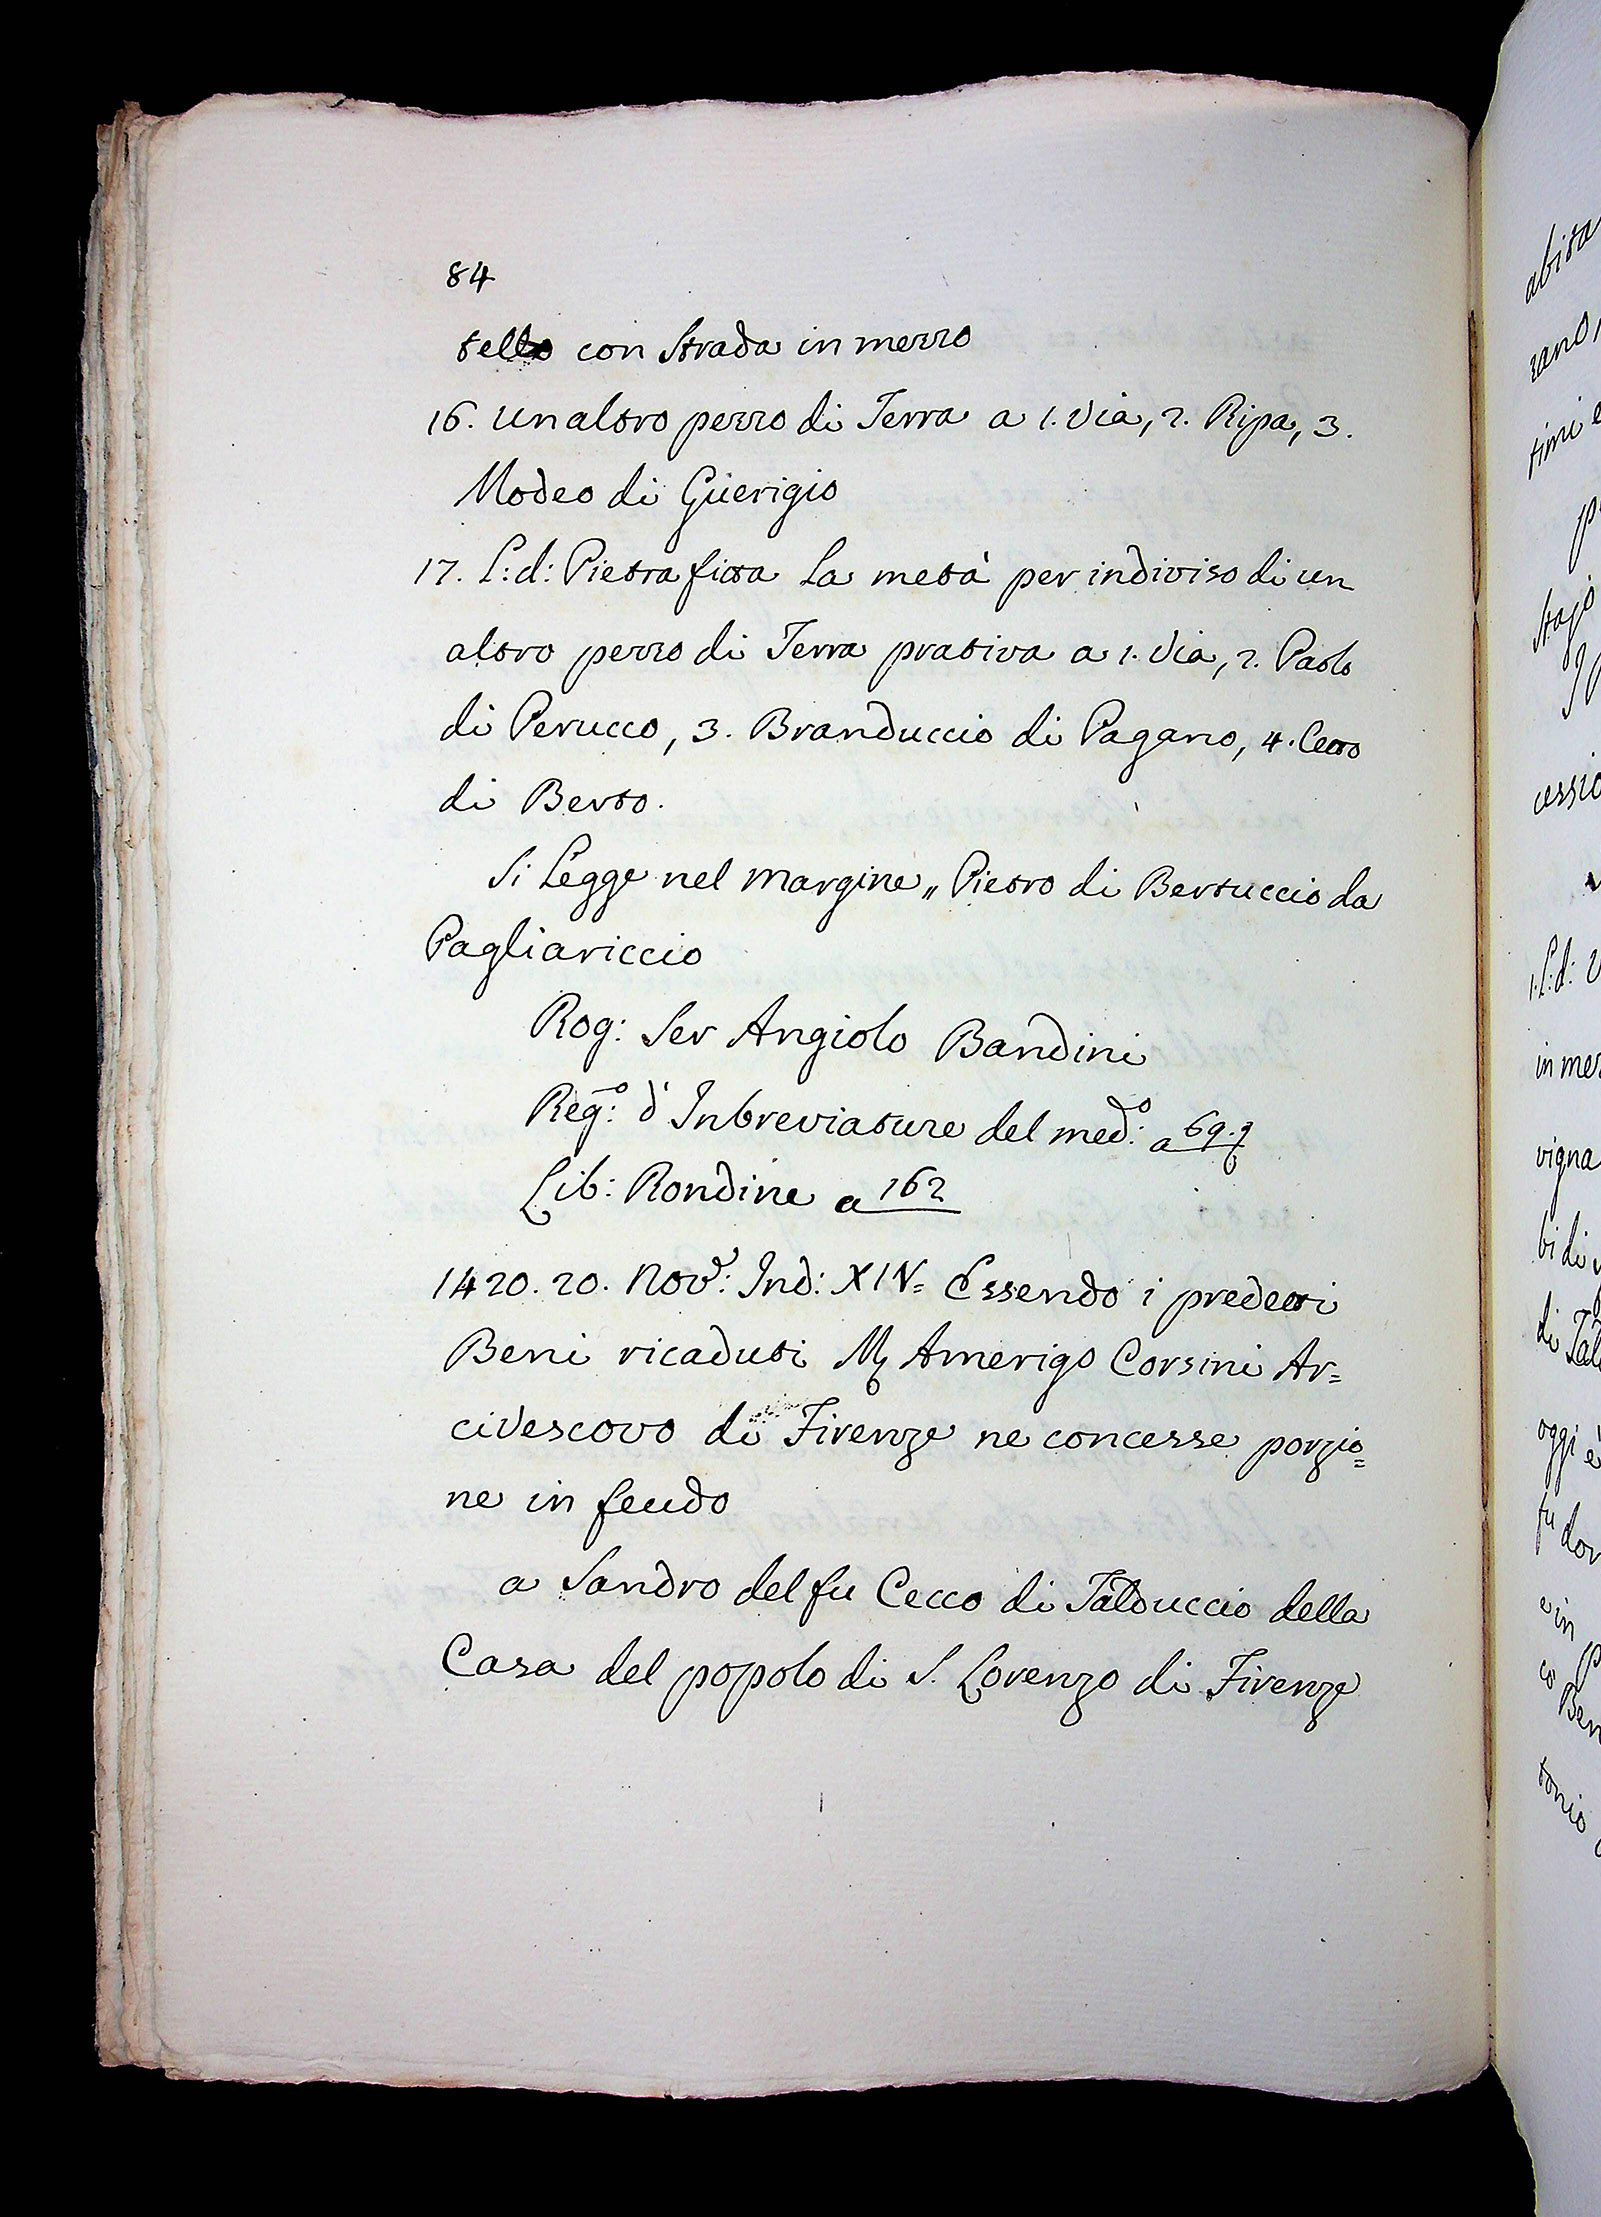 84
tello con Strada in mezzo
16. Un altro pezzo di Terra a 1. Via, 2. Ripa, 3.
Modeo di Guerigio
17. L: d: Pietra fitta La metà per indiviso di un
altro pezzo di Terra prativa a 1. Via, 2. Paolo
di Perucco, 3. Branduccio di Pagano, 4. Cetto
di Berto.
Si Legge nel margine „ Pietro di Bertuccio da
Pagliariccio
Rog: Ser Angiolo Bandini
Reg:º d'Inbreviature del med:º a 69.
Lib: Rondine a 162
1420. 20. Nov:e Ind: XIV= Essendo i predetti
Beni ricaduti Mg Amerigo Corsini Ar=
civescovo di Firenze ne concesse porzio=
ne in feudo
a Sandro del fu Cecco di Talduccio della
Casa del popolo di S. Lorenzo di Firenze
abita
timi e
stajo
cessio
1. L: d: V
in mez
vigna
bi di
di Tal
oggi è
fu don
e in
co
Ben
tonio